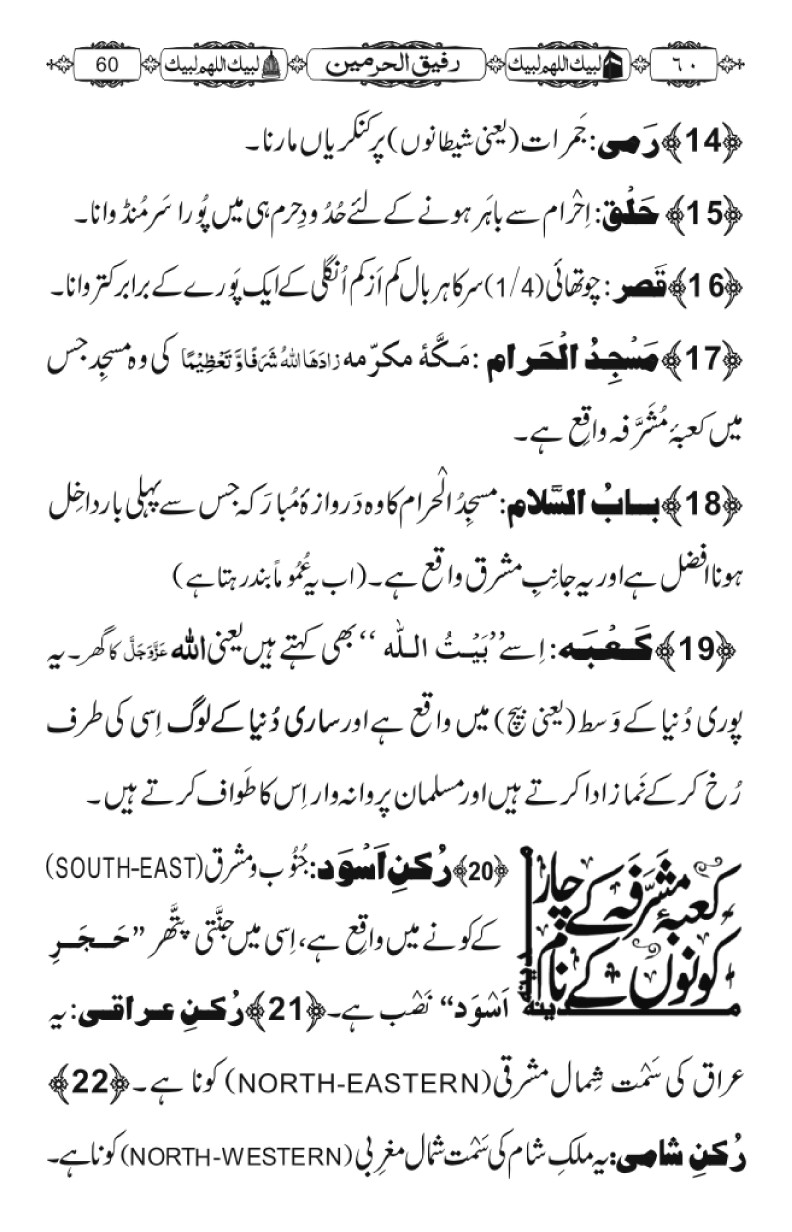 ٦٠ لبیك اللھم لبیك رفیق الحرمین لبیك اللھم لبیك 60
﴿14﴾ رَمی: جَمرات (یعنی شیطانوں) پر کنکریاں مارنا۔
﴿15﴾ حَلْق: اِحْرام سے باہَر ہونے کے لئے حُدُودِ حرم ہی میں پُورا سَر مُنڈوانا۔
﴿16﴾ قَصر: چوتھائی (1/4) سر کا ہر بال کم اَز کم اُنگلی کے ایک پَورے کے برابر کتروانا۔
﴿17﴾ مَسْجِدُ الْحَرام: مَکَّۂ مکرّمہ زادَھَا اللہُ شَرَفًا وَّ تَعْظِیْمًا کی وہ مسجِد جس
میں کعبۂ مُشَرَّفہ واقِع ہے۔
﴿18﴾ بابُ السَّلام: مسجِدُ الْحرام کا وہ دَروازۂ مُبارَکہ جس سے پہلی بار داخِل
ہونا افضل ہے اور یہ جانِبِ مشرق واقع ہے۔ (اب یہ عُمُوماً بند رہتا ہے)
﴿19﴾ کَعْبَہ: اِسے ’’بَیْتُ اللّٰہ‘‘ بھی کہتے ہیں یعنی اللہ عَزَّوَجَلَّ کا گھر۔ یہ
پوری دُنیا کے وَسط (یعنی بیچ) میں واقع ہے اور ساری دُنیا کے لوگ اِسی کی طرف
رُخ کر کے نَماز ادا کرتے ہیں اور مسلمان پروانہ وار اِس کا طَواف کرتے ہیں۔
کعبۂ مشَرَّفہ کے چار
کونوں کے نام
مدینہ مدینہ
﴿20﴾ رُکنِ اَسْوَد: جُنُوب و مشرق (SOUTH-EAST)
کے کونے میں واقِع ہے، اِسی میں جنَّتی پتَّھر ’’حَجَرِ
اَسْوَد‘‘ نَصْب ہے۔ ﴿21﴾ رُکنِ عراقی: یہ
عراق کی سَمْت شِمال مشرقی (NORTH-EASTERN) کونا ہے۔ ﴿22﴾
رُکنِ شامی: یہ ملکِ شام کی سَمْت شمال مغرِبی (NORTH-WESTERN) کونا ہے۔